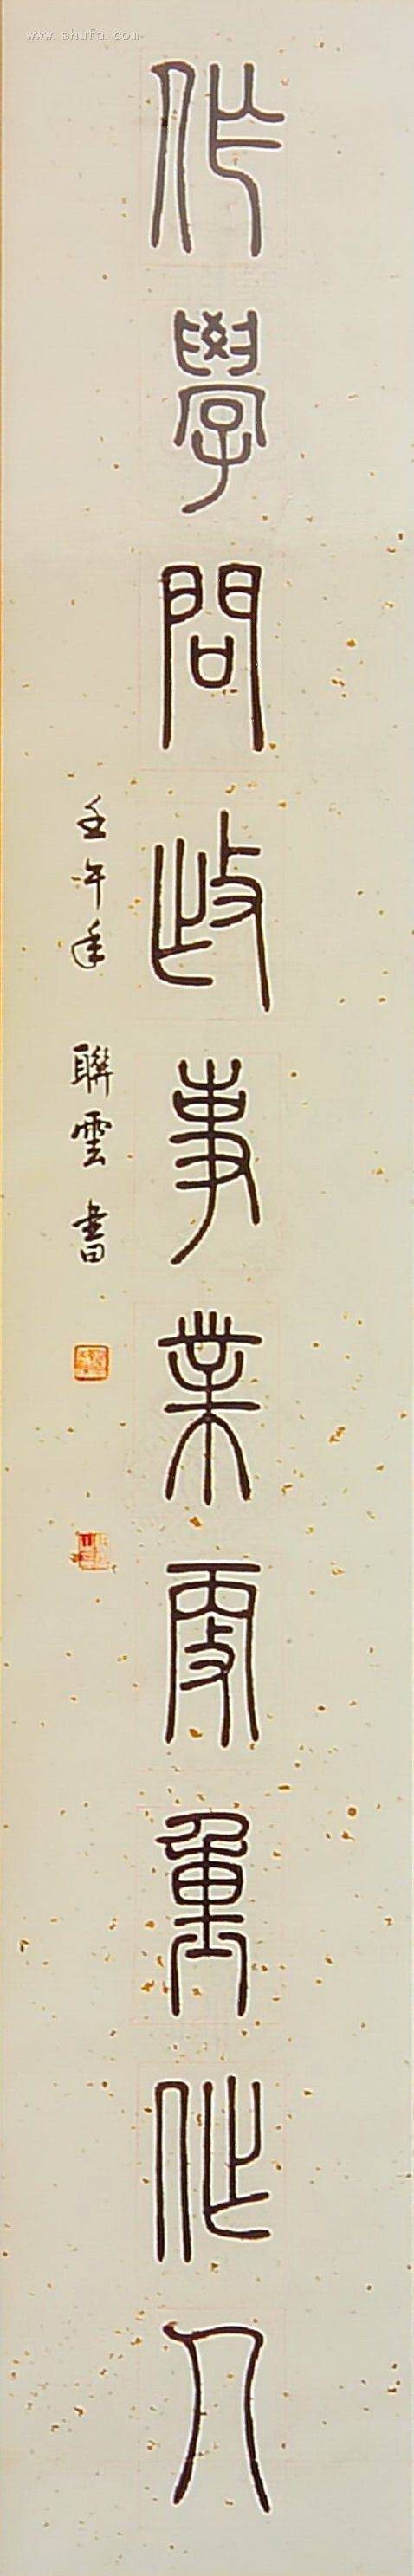 www.shufa.com
作學問作事業更重作人
壬午年 聯雲書